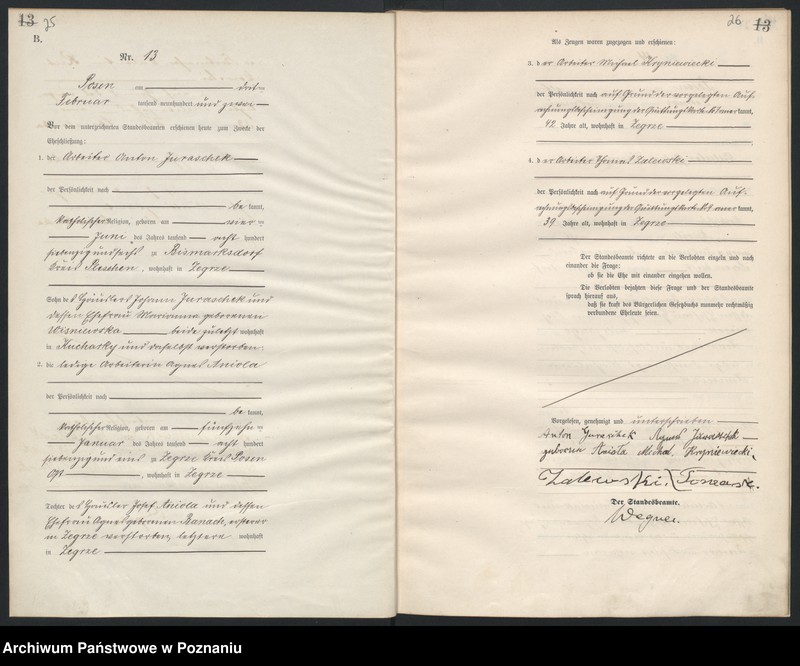 13 25
B.
Nr. 13
Posen am drei-
Februar tausend neunhundert und zwei
Vor dem unterzeichneten Standesbeamten erschienen heute zum Zwecke der
Eheschließung:
1. der Arbeiter Anton Juraschek
der Persönlichkeit nach
be kannt,
katholischer Religion, geboren am vier-
Juni des Jahres tausend acht hundert
siebenzig und sechs zu Bismarksdorf
Kreis Pleschen, wohnhaft in Zegrze
Sohn des Häuslers Johann Juraschek und
dessen Ehefrau Marianna geborenen
Wisniewska beide zuletzt wohnhaft
in Kuchasky und daselbst verstorben.
2. die ledige Arbeiterin Agnes Aniola
der Persönlichkeit nach
be kannt,
katholischer Religion, geboren am fünfzehn-
Januar des Jahres tausend acht hundert
siebenzig und eins zu Zegrze Kreis Posen
Ost, wohnhaft in Zegrze
Tochter des Häusler Josef Aniola und dessen
Ehefrau Agnes geborenen Banach, ersterer
in Zegrze verstorben, letztere wohnhaft
in Zegrze
26 13
Als Zeugen waren zugezogen und erschienen:
3. der Arbeiter Michael Krzyniewiecki
der Persönlichkeit nach auf Grund der vorgelegten Auf-
rechnungsbescheinigung der Quittungskarte No 1 anerkannt,
42 Jahre alt, wohnhaft in Zegrze
4. der Arbeiter Thomas Zalewski
der Persönlichkeit nach auf Grund der vorgelegten Auf-
rechnungsbescheinigung der Quittungskarte No 9 anerkannt,
39 Jahre alt, wohnhaft in Zegrze
Der Standesbeamte richtete an die Verlobten einzeln und nach
einander die Frage:
ob sie die Ehe mit einander eingehen wollen.
Die Verlobten bejahten diese Frage und der Standesbeamte
sprach hierauf aus,
daß sie kraft des Bürgerlichen Gesetzbuchs nunmehr rechtmäßig
verbundene Eheleute seien.
Vorgelesen, genehmigt und unterschrieben
Anton Juraschek Agnes Juraschek
geboren Aniola Michal
Zalewski
Der Standesbeamte.
Wegner.
Archiwum Państwowe w Poznaniu